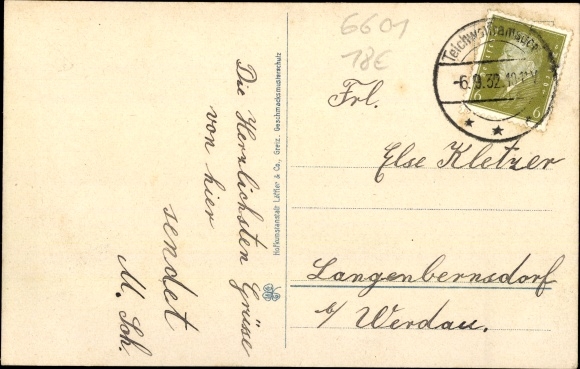 6601
18E
Teichwolframsdorf
-6.9.32.
6
Die Herzlichsten Grüsse
von hier
sendet
M. Joh.
Hofkunstanstalt Löffler & Co., Greiz. Geschmacksmusterschutz
Frl.
Else Kletzer
Langenbernsdorf
b/ Werdau.